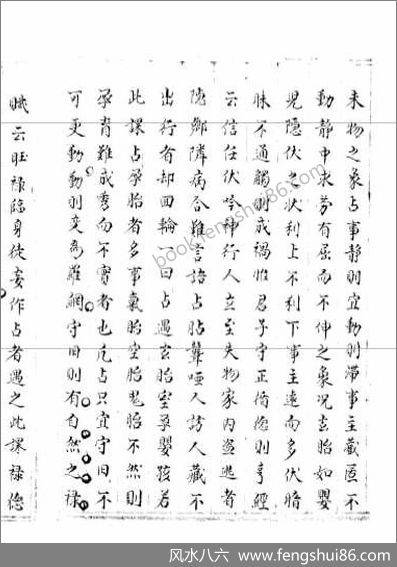 未物之象占事静則宜動則滞事主藏匿不
動静中求努有屈而不伸之象况玄胎如嬰
児隐伏之状利上不利下事主遠而多伏暗
昧不通觸則成禍惟君子守正脩德則亨經
云信任伏吟神行人立至失物家内盗逃者
隐鄉隣病合难言語占胎聾啞人訪人藏不
出行者却回輪一曰占遇玄胎空孕嬰孩若
此課占孕胎者多事氣胎空胎鬼胎不然則
孕育難成秀而不實者也凡占只宜守旧不
可更動動則变為羅網守旧則有自然之禄
云旺禄臨身徒妄作占者遇之此課禄

bookfengshui86.com
风水八六 www.fengshui86.com